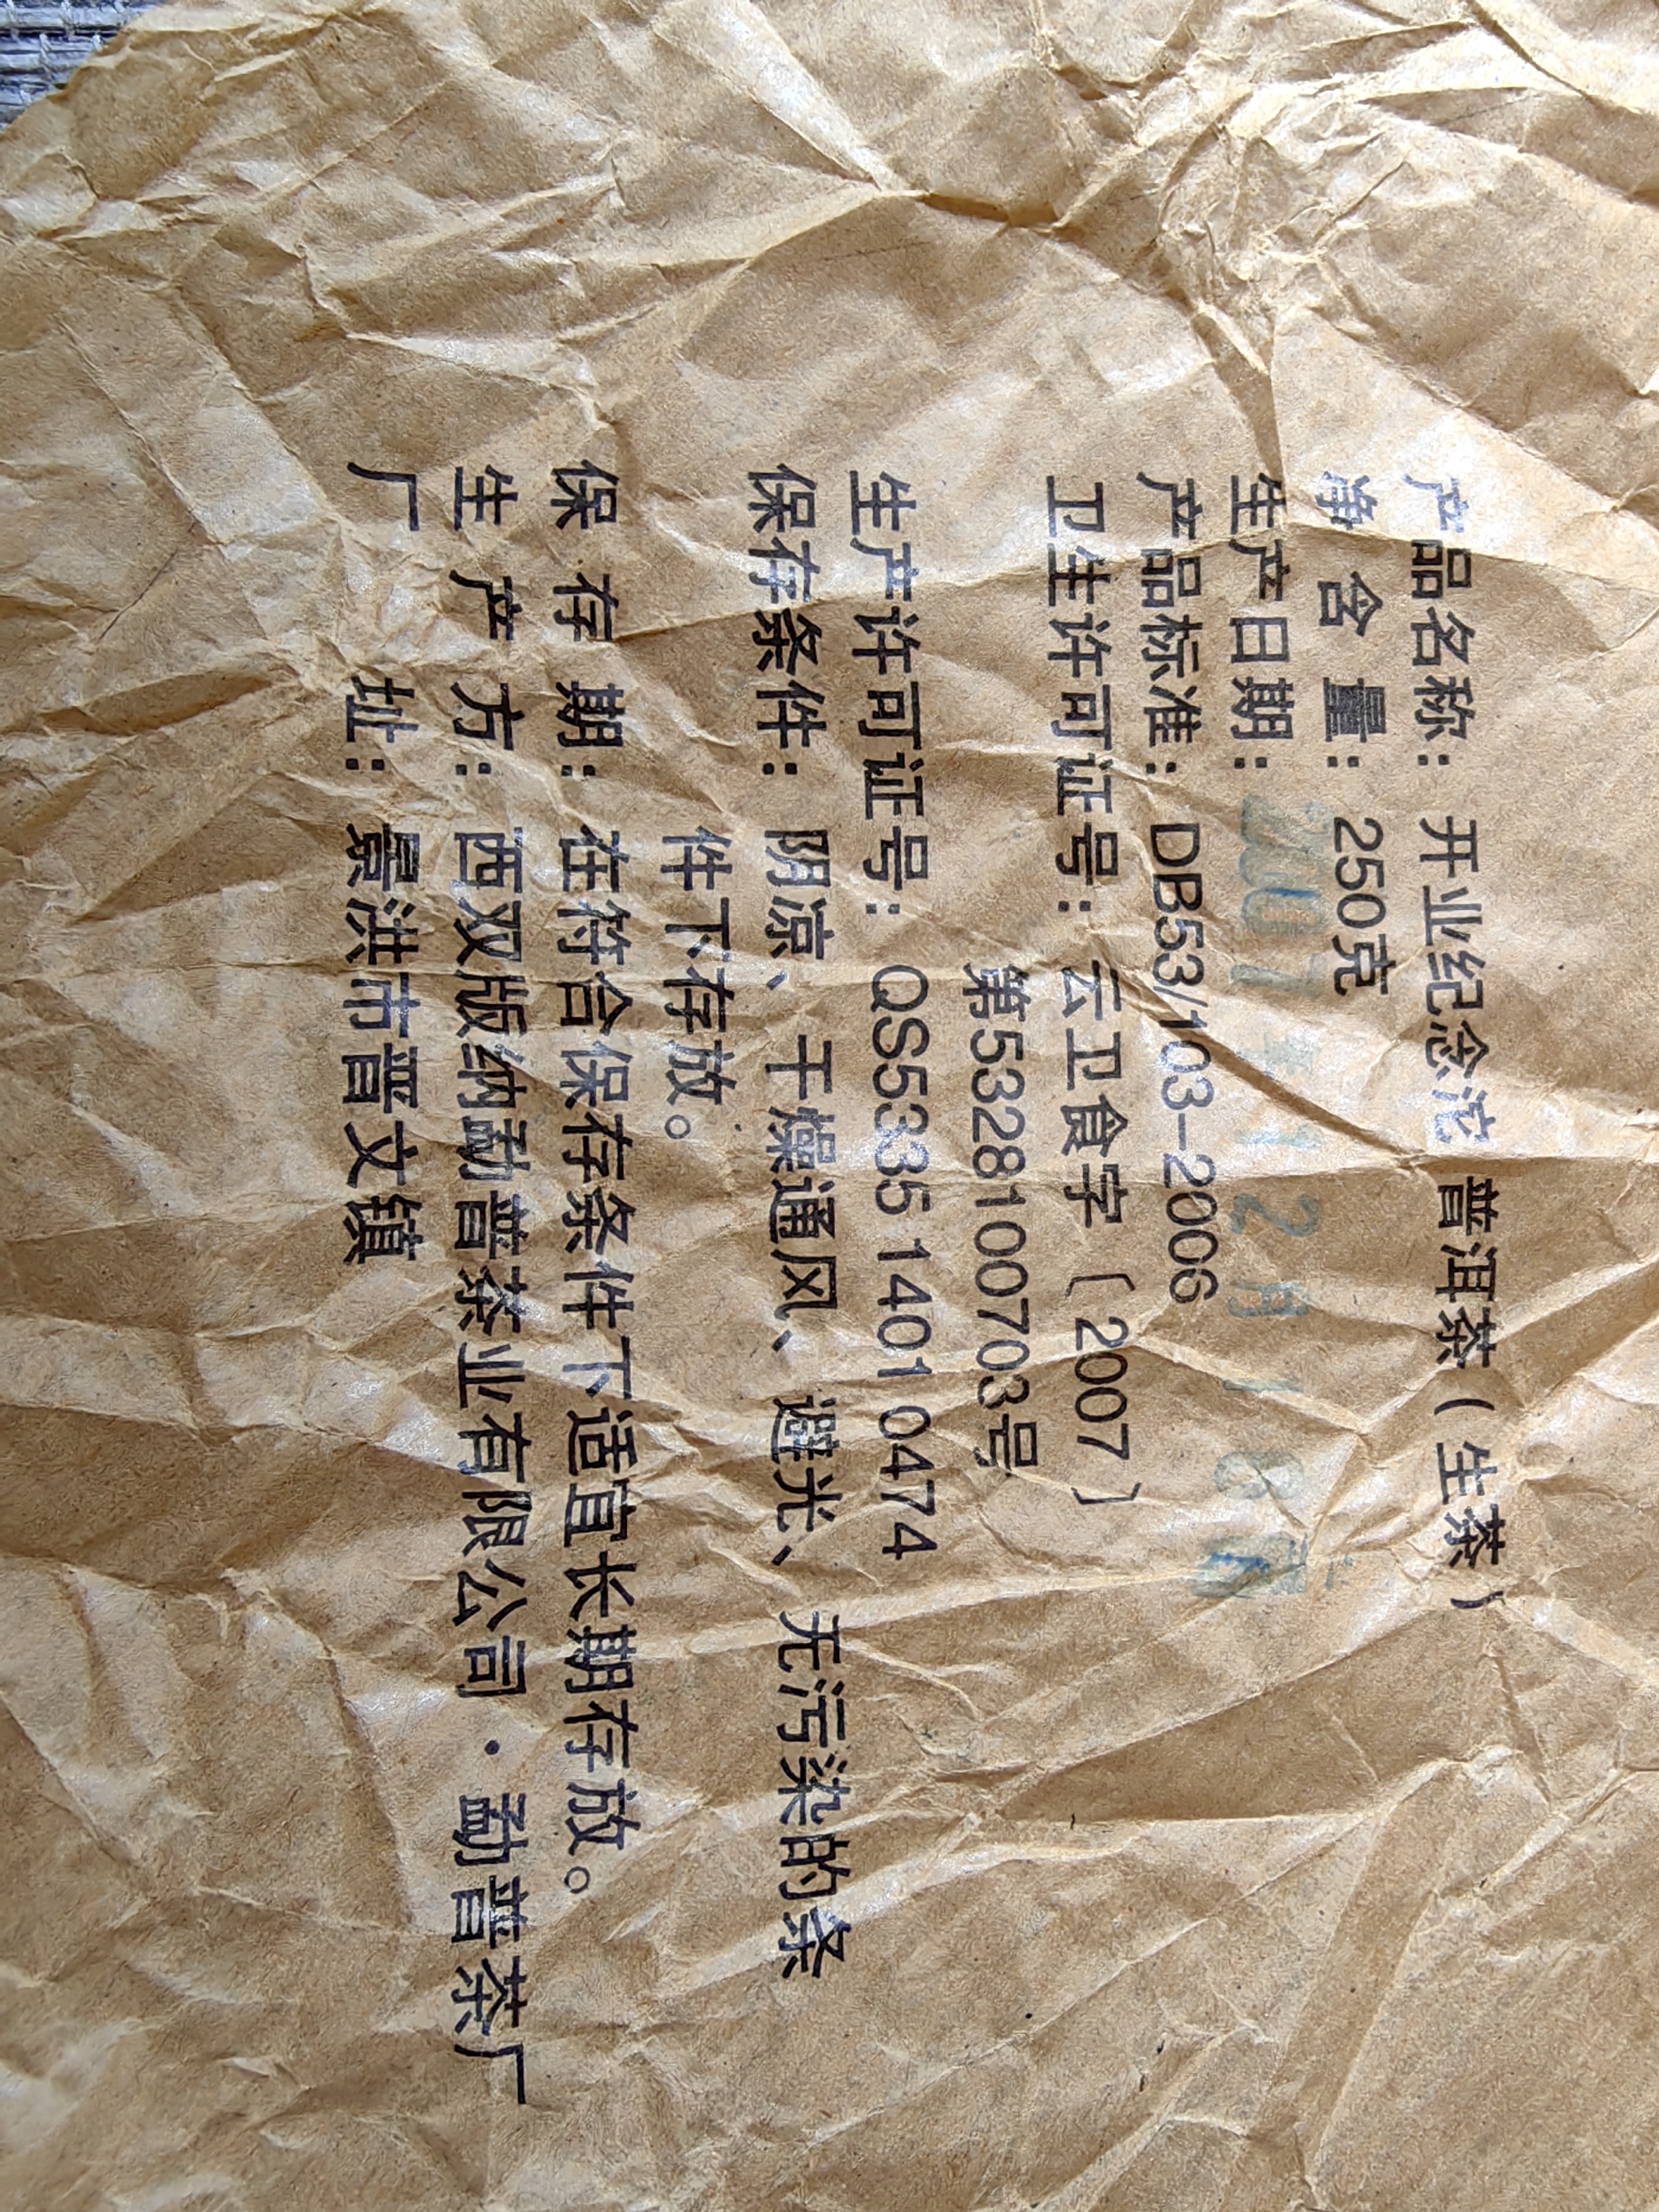 产品名称：开业纪念沱 普洱茶（生茶）
净含量：250克
生产日期：2007年12月16日
产品标准：DB53/103-2006
卫生许可证号：云卫食字〔2007〕
第5328100703号
生产许可证号：QS5335 1401 0474
保存条件：阴凉、干燥通风、避光、无污染的条
件下存放。
保存期：在符合保存条件下适宜长期存放。
生产方：西双版纳勐普茶业有限公司·勐普茶厂
厂址：景洪市普文镇